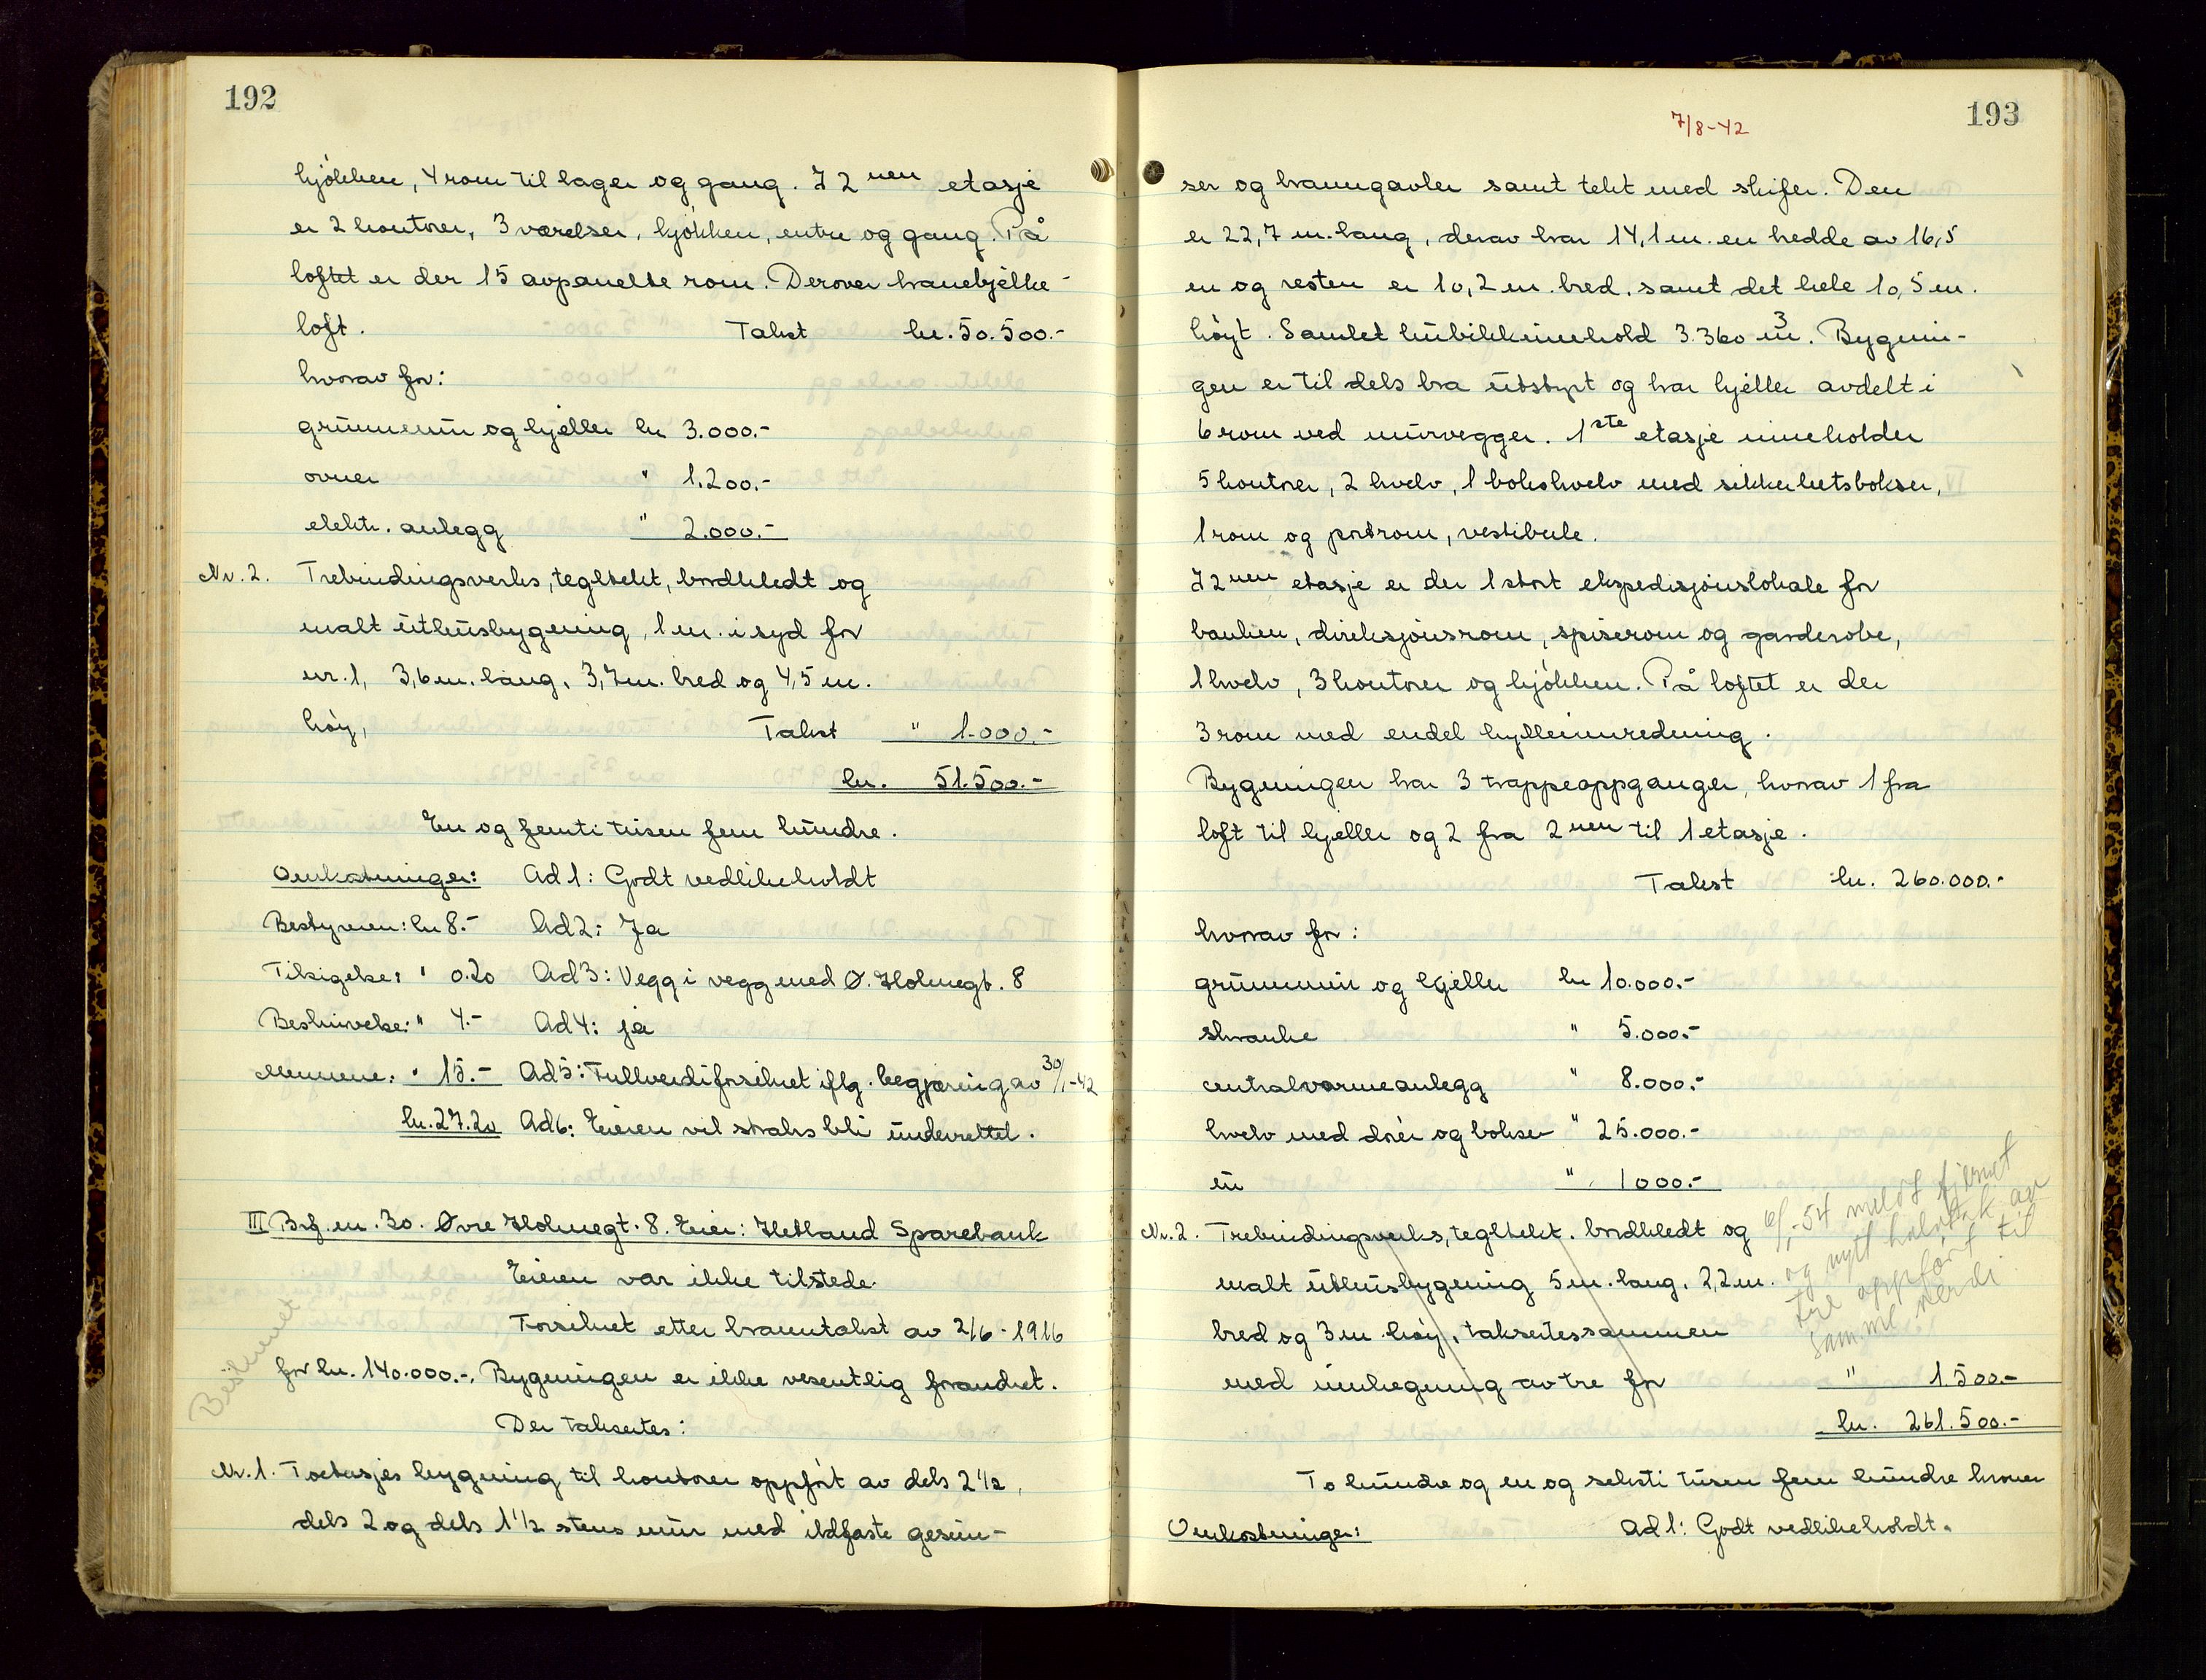 192
kjökken, 4 rom til lager og gang. I 2nen etasje
er 2 kontorer, 3 værelser, kjökken, entre og gang. På
loftet er der 15 avpanelte rom. Derover hanebjelke-
loft. Takst kr. 50.500.-
hvorav for:
grunnmur og kjeller kr 3.000.-
ovner " 1.200.-
elektr. anlegg " 2.000.-
Nr. 2. Trebindingsverks, tegltekt, bordkledt og
malt uthusbygning, 1 m. i syd for
nr. 1, 3,6 m. lang, 3,7 m. bred og 4,5 m.
höy, Takst " 1.000.-
kr. 51.500.-
En og femti tusen fem hundre.
Omkostninger: Ad 1: Godt vedlikeholdt
Bestyreren: kr 8.- Ad 2: Ja
Tilsigelse: " 0.20 Ad 3: Vegg i vegg med Ø. Holmegt. 8
Beskrivelse: " 4.- Ad 4: ja
Mennene: " 15.- Ad 5: Fullverdiforsikret iflg. begjæring av 30/1-42
kr. 27.20 Ad 6: Eieren vil straks bli underrettet.
III Brf. nr. 30. Øvre Holmegt. 8. Eier: Hetland Sparebank
Eieren var ikke tilstede.
Forsikret etter branntakst av 2/6-1916
for kr. 140.000.-. Bygningen er ikke vesentlig forandret.
Beskrivet
Der takseres:
Nr. 1. Toetasjes bygning til kontorer oppfört av dels 2 1/2,
dels 2 og dels 1 1/2 stens mur med ildfaste gesim-
193
7/8-42
ser og branngavler samt tekt med skifer. Den
er 22,7 m. lang, derav har 14,1 m. en bredde av 16,5
m og resten er 10,2 m. bred, samt det hele 10,5 m.
höyt. Samlet kubikkinnehold 3.360 m3. Bygnin-
gen er til dels bra utstyrt og har kjeller avdelt i
6 rom ved murvegger. 1ste etasje inneholder
5 kontorer, 2 hvelv, 1 bokshvelv med sikkerhetsbokser,
1 rom og portrom, vestibule.
I 2nen etasje er der 1 stort ekspedisjonslokale for
banken, direksjonsrom, spiserom og garderobe,
1 hvelv, 3 kontorer og kjökken. På loftet er der
3 rom med endel hylleinnredning.
Bygningen har 3 trappeoppganger, hvorav 1 fra
loft til kjeller og 2 fra 2nen til 1 etasje.
Takst kr. 260.000.-
hvorav for:
grunnmur og kjeller kr 10.000.-
skranke " 5.000.-
centralvarmeanlegg " 8.000.-
hvelv med dörer og bokser " 25.000.-
ur " 1000.-
Nr. 2. Trebindingsverks, tegltekt, bordkledt og
malt uthusbygning 5 m. lang, 2,2 m.
bred og 3 m. höy, taksertes sammen
med innhegning av tre for " 1.500.-
6/1-54 meldt fjernet
og nytt halvtak av
tre oppfört til
samme verdi
kr. 261.500.-
To hundre og en og seksti tusen fem hundre kroner
Omkostninger: Ad 1: Godt vedlikeholdt.